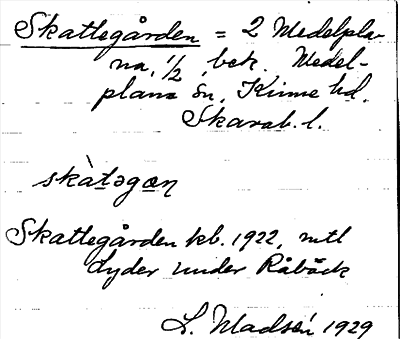 Skattegården = 2 Medelpla-
na, 1/2, bek. Medel-
plana Sn, Kinne hd.
Skarab. l.
skàtəgɑn
Skattegården kb. 1922, mtl
lyder under Råbäck
L. Madsén 1929